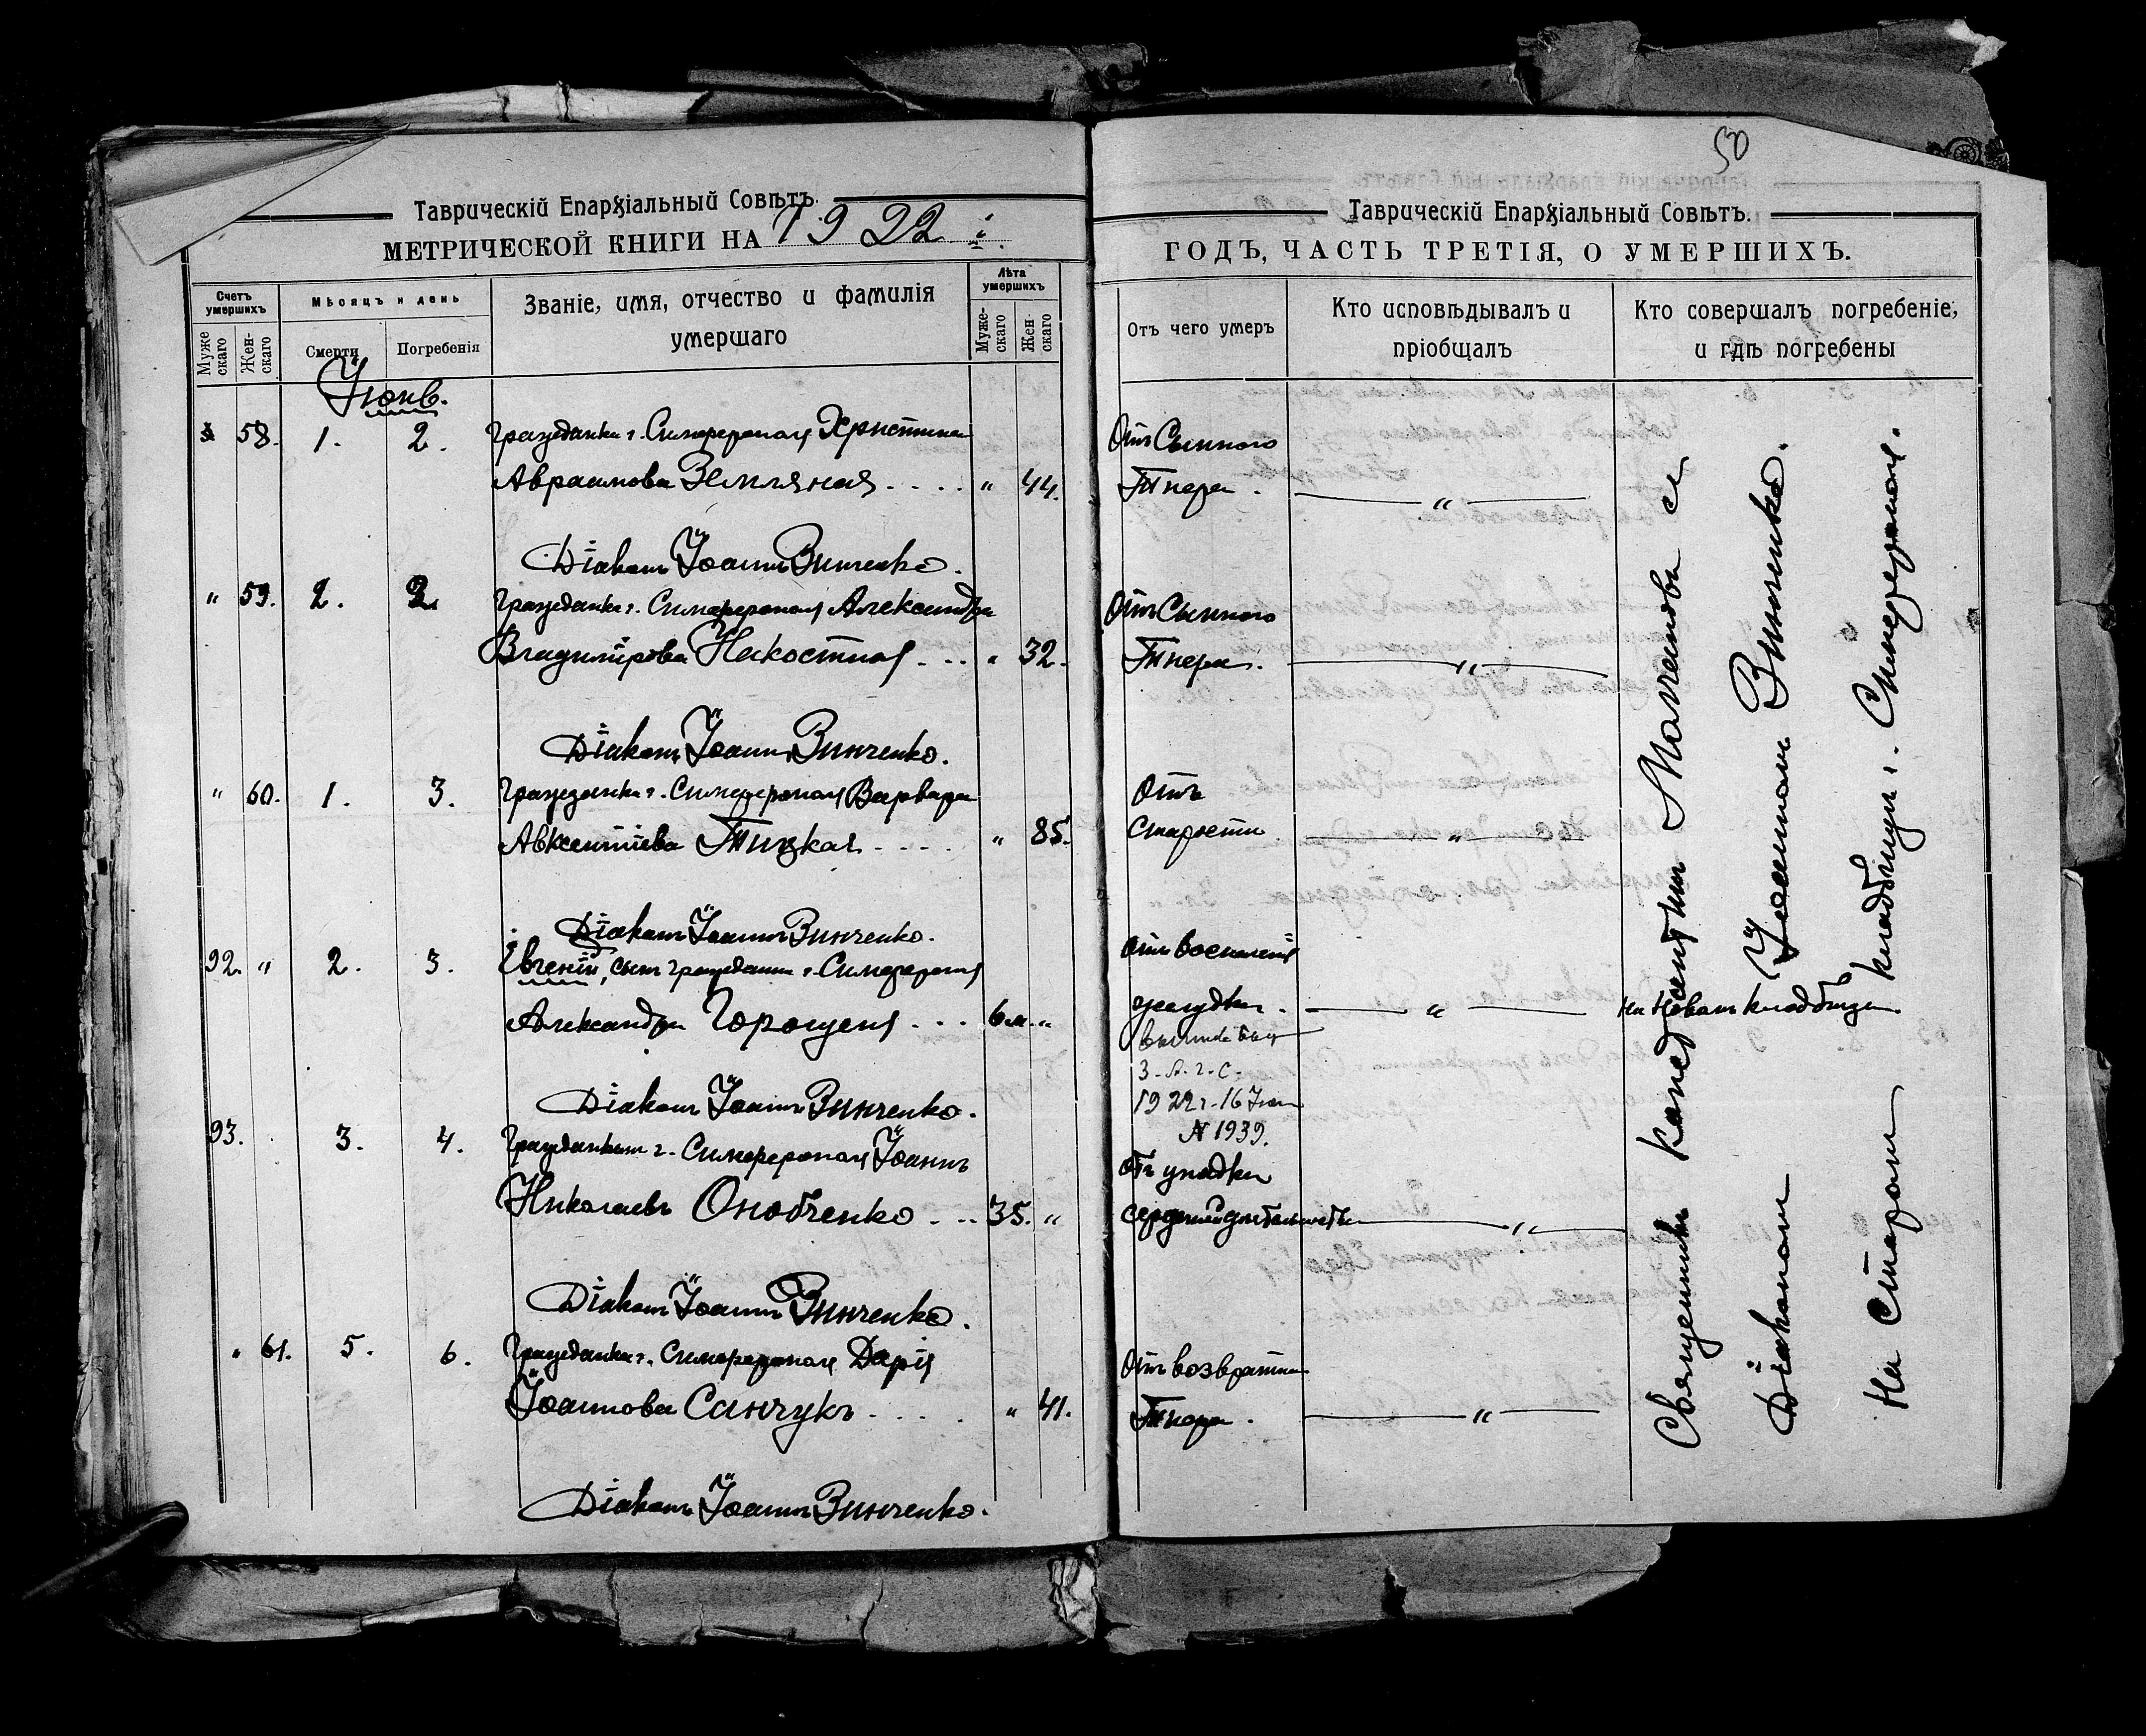 50
Таврическій Епархіальный Совѣтъ.
МЕТРИЧЕСКОЙ КНИГИ НА 1922 г.
Счетъ умершихъ
Мѣсяцъ и день
Званіе, имя, отчество и фамилія умершаго
Лѣта умершихъ
Мужескаго
Женскаго
Смерти
Погребенія
Мужескаго
Женскаго
Іюнь.
58. 1. 2. Гражданка г. Симферополя Христина
Авраамова Земляная . . . . " 44.
Діаконъ Іоаннъ Винченко.
" 59. 2. 2. Гражданка г. Симферополя Александра
Владимірова . . . " 32.
Діаконъ Іоаннъ Винченко.
" 60. 1. 3. Гражданка г. Симферополя Варвара
Авксентіева . . . . " 85.
Діаконъ Іоаннъ Винченко.
92. " 2. 3. Евгеній, сынъ гражданина г. Симферополя
Александра . . . 6 м. "
Діаконъ Іоаннъ Винченко.
93. 3. 4. Гражданинъ г. Симферополя Іоаннъ
Николаевъ Онобченко . . . 35. "
Діаконъ Іоаннъ Винченко.
" 61. 5. 6. Гражданка г. Симферополя Дарія
Іоаннова Санчукъ . . . . " 41.
Діаконъ Іоаннъ Винченко.
Таврическій Епархіальный Совѣтъ.
ГОДЪ, ЧАСТЬ ТРЕТІЯ, О УМЕРШИХЪ.
Отъ чего умеръ
Кто исповѣдывалъ и пріобщалъ
Кто совершалъ погребеніе, и гдѣ погребены
Отъ Сыпного
Тифа. "
Отъ Сыпного
Тифа. "
Отъ
старости "
Отъ воспаленія
желудка. " На Новомъ кладбищѣ.
3.А.Г.С.
1922 г. 16 Іюн
N 1939.
Отъ упадка
сердечной дѣятельности "
Отъ возвратнаго
Тифа. "
Священникъ съ
Діакономъ Іоанномъ Винченко.
На Старомъ кладбищѣ г. Симферополя.